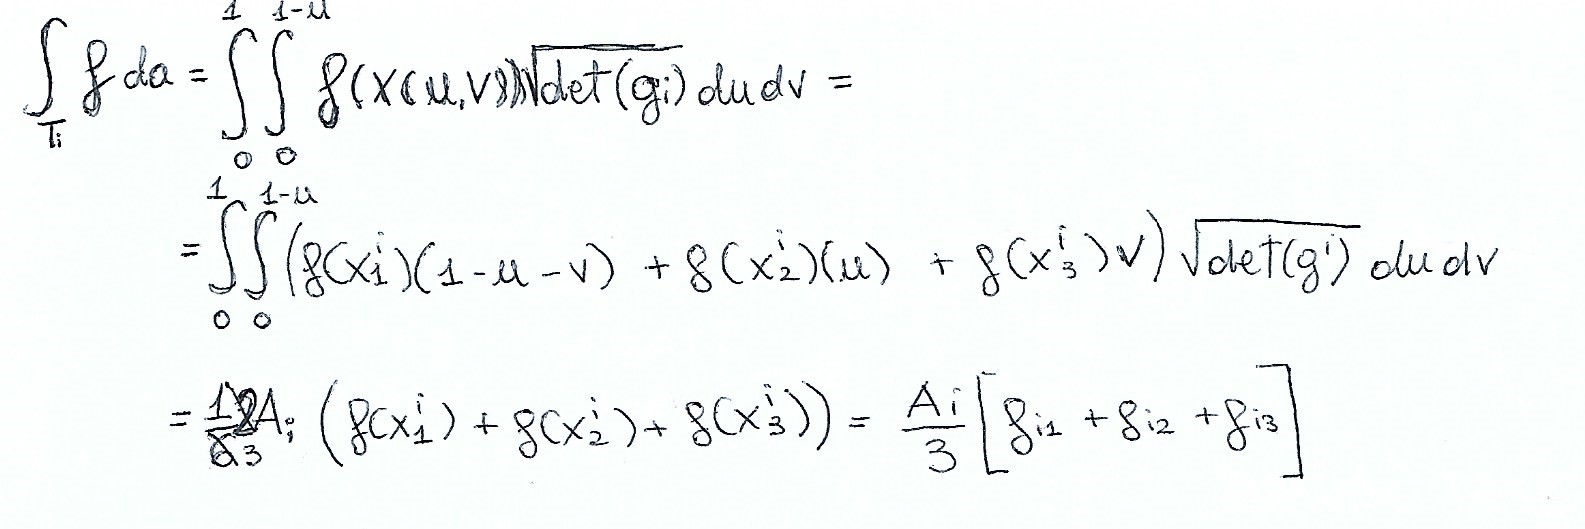 ∫_{T_i} f da = ∫_0^1 ∫_0^{1-u} f(x(u,v)) √det(g_i) du dv =
= ∫_0^1 ∫_0^{1-u} (f(x_1^i)(1-u-v) + f(x_2^i)(u) + f(x_3^i)v) √det(g^i) du dv
= A_i (f(x_1^i) + f(x_2^i) + f(x_3^i)) = A_i/3 [f_{i1} + f_{i2} + f_{i3}]